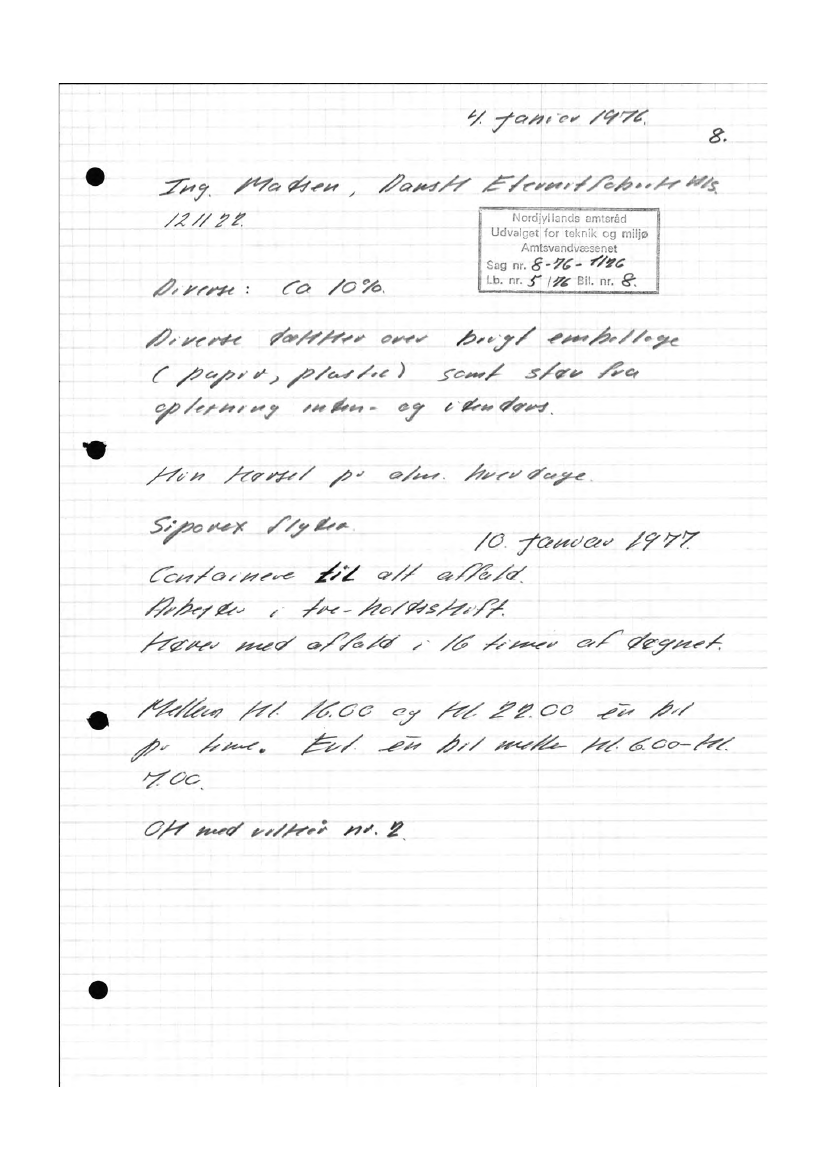 4. januar 1976.
8.
Ing. Madsen, Dansk Eternitfabrik
121122.
Nordjyllands amtsråd
Udvalget for teknik og miljø
Amtsvandvæsenet
Sag nr. 8-76-1/76
Lb. nr. 5/76 Bil. nr. 8.
Diverse: Ca 10%.
Diverse dækker over brugt emballage
(papir, plastic) samt støv fra
opfejning inden- og udendørs.
Kun kørsel på alm. hverdage.
Siporex flyder.
10. januar 1977.
Containere til alt affald.
Arbejder i tre-holdsskift.
Kører med affald i 16 timer af døgnet.
Mellem kl. 16.00 og kl. 22.00 én bil
pr time. Evt. én bil mellem kl. 6.00-kl.
7.00.
OK med vilkår nr. 2.